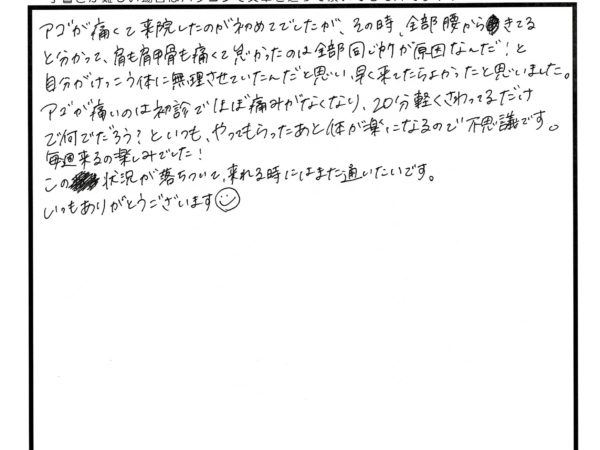 アゴが痛くて来院したのが初めてでしたが、その時、全部腰からきてる
と分かって、肩も肩甲骨も痛くて悪かったのは全部同じ所が原因なんだ!と
自分がけっこう体に無理させていたんだと思い、早く来てたらよかったと思いました。
アゴが痛いのは初診でほぼ痛みがなくなり、20分軽くさわってるだけ
で何でだろう?といつも、やってもらったあと体が楽になるので不思議です。
毎週来るの楽しみでした!
この状況が落ちついて、来れる時にはまた通いたいです。
いつもありがとうございます